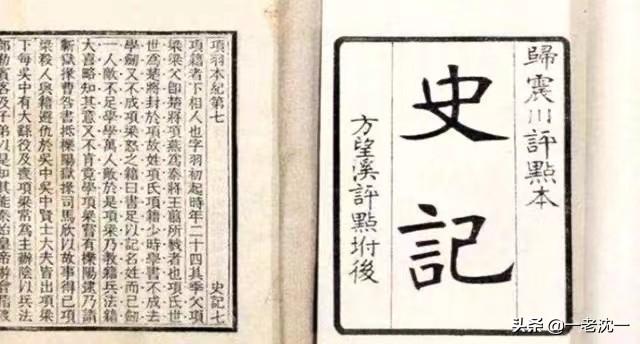 歸震川評點本
史記
方望溪評點坿後
項羽本紀第七 史記七
項籍者下相人也字羽初起時年二十四其季父項
梁梁父即楚將項燕爲秦將王翦所戮者也項氏世
世爲楚將封於項故姓項氏項籍少時學書不成去
學劒又不成項梁怒之籍曰書足以記名姓而已劒
一人敵不足學學萬人敵於是項梁乃教籍兵法籍
大喜略知其意又不肯竟學項梁嘗有櫟陽逮乃請
蘄獄掾曹咎書抵櫟陽獄掾司馬欣以故事得已項
梁殺人與籍避仇於吳中吳中賢士大夫皆出項梁
下每吳中有大繇役及喪項梁常爲主辦陰以兵法
部勒賓客及子弟以是知其能秦始皇帝游會稽渡
头条 @一老沈一